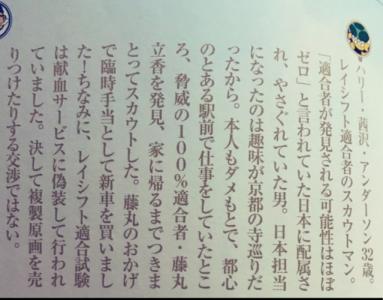 ハリー・茜沢・アンダーソン32歳。
レイシフト適合者のスカウトマン。
「適合者が発見される可能性はほぼ
ゼロ」と言われていた日本に配属さ
れ、やさぐれていた男。日本担当
になったのは趣味が京都の寺巡りだ
ったから。本人もダメもとで、都心
のとある駅前で仕事をしていたとこ
ろ、脅威の100%適合者・藤丸
立香を発見、家に帰るまでつきま
とってスカウトした。藤丸のおかげ
で臨時手当として新車を買いまし
た！ちなみに、レイシフト適合試験
は献血サービスに偽装して行われ
ていました。決して複製原画を売
りつけたりする交渉ではない。